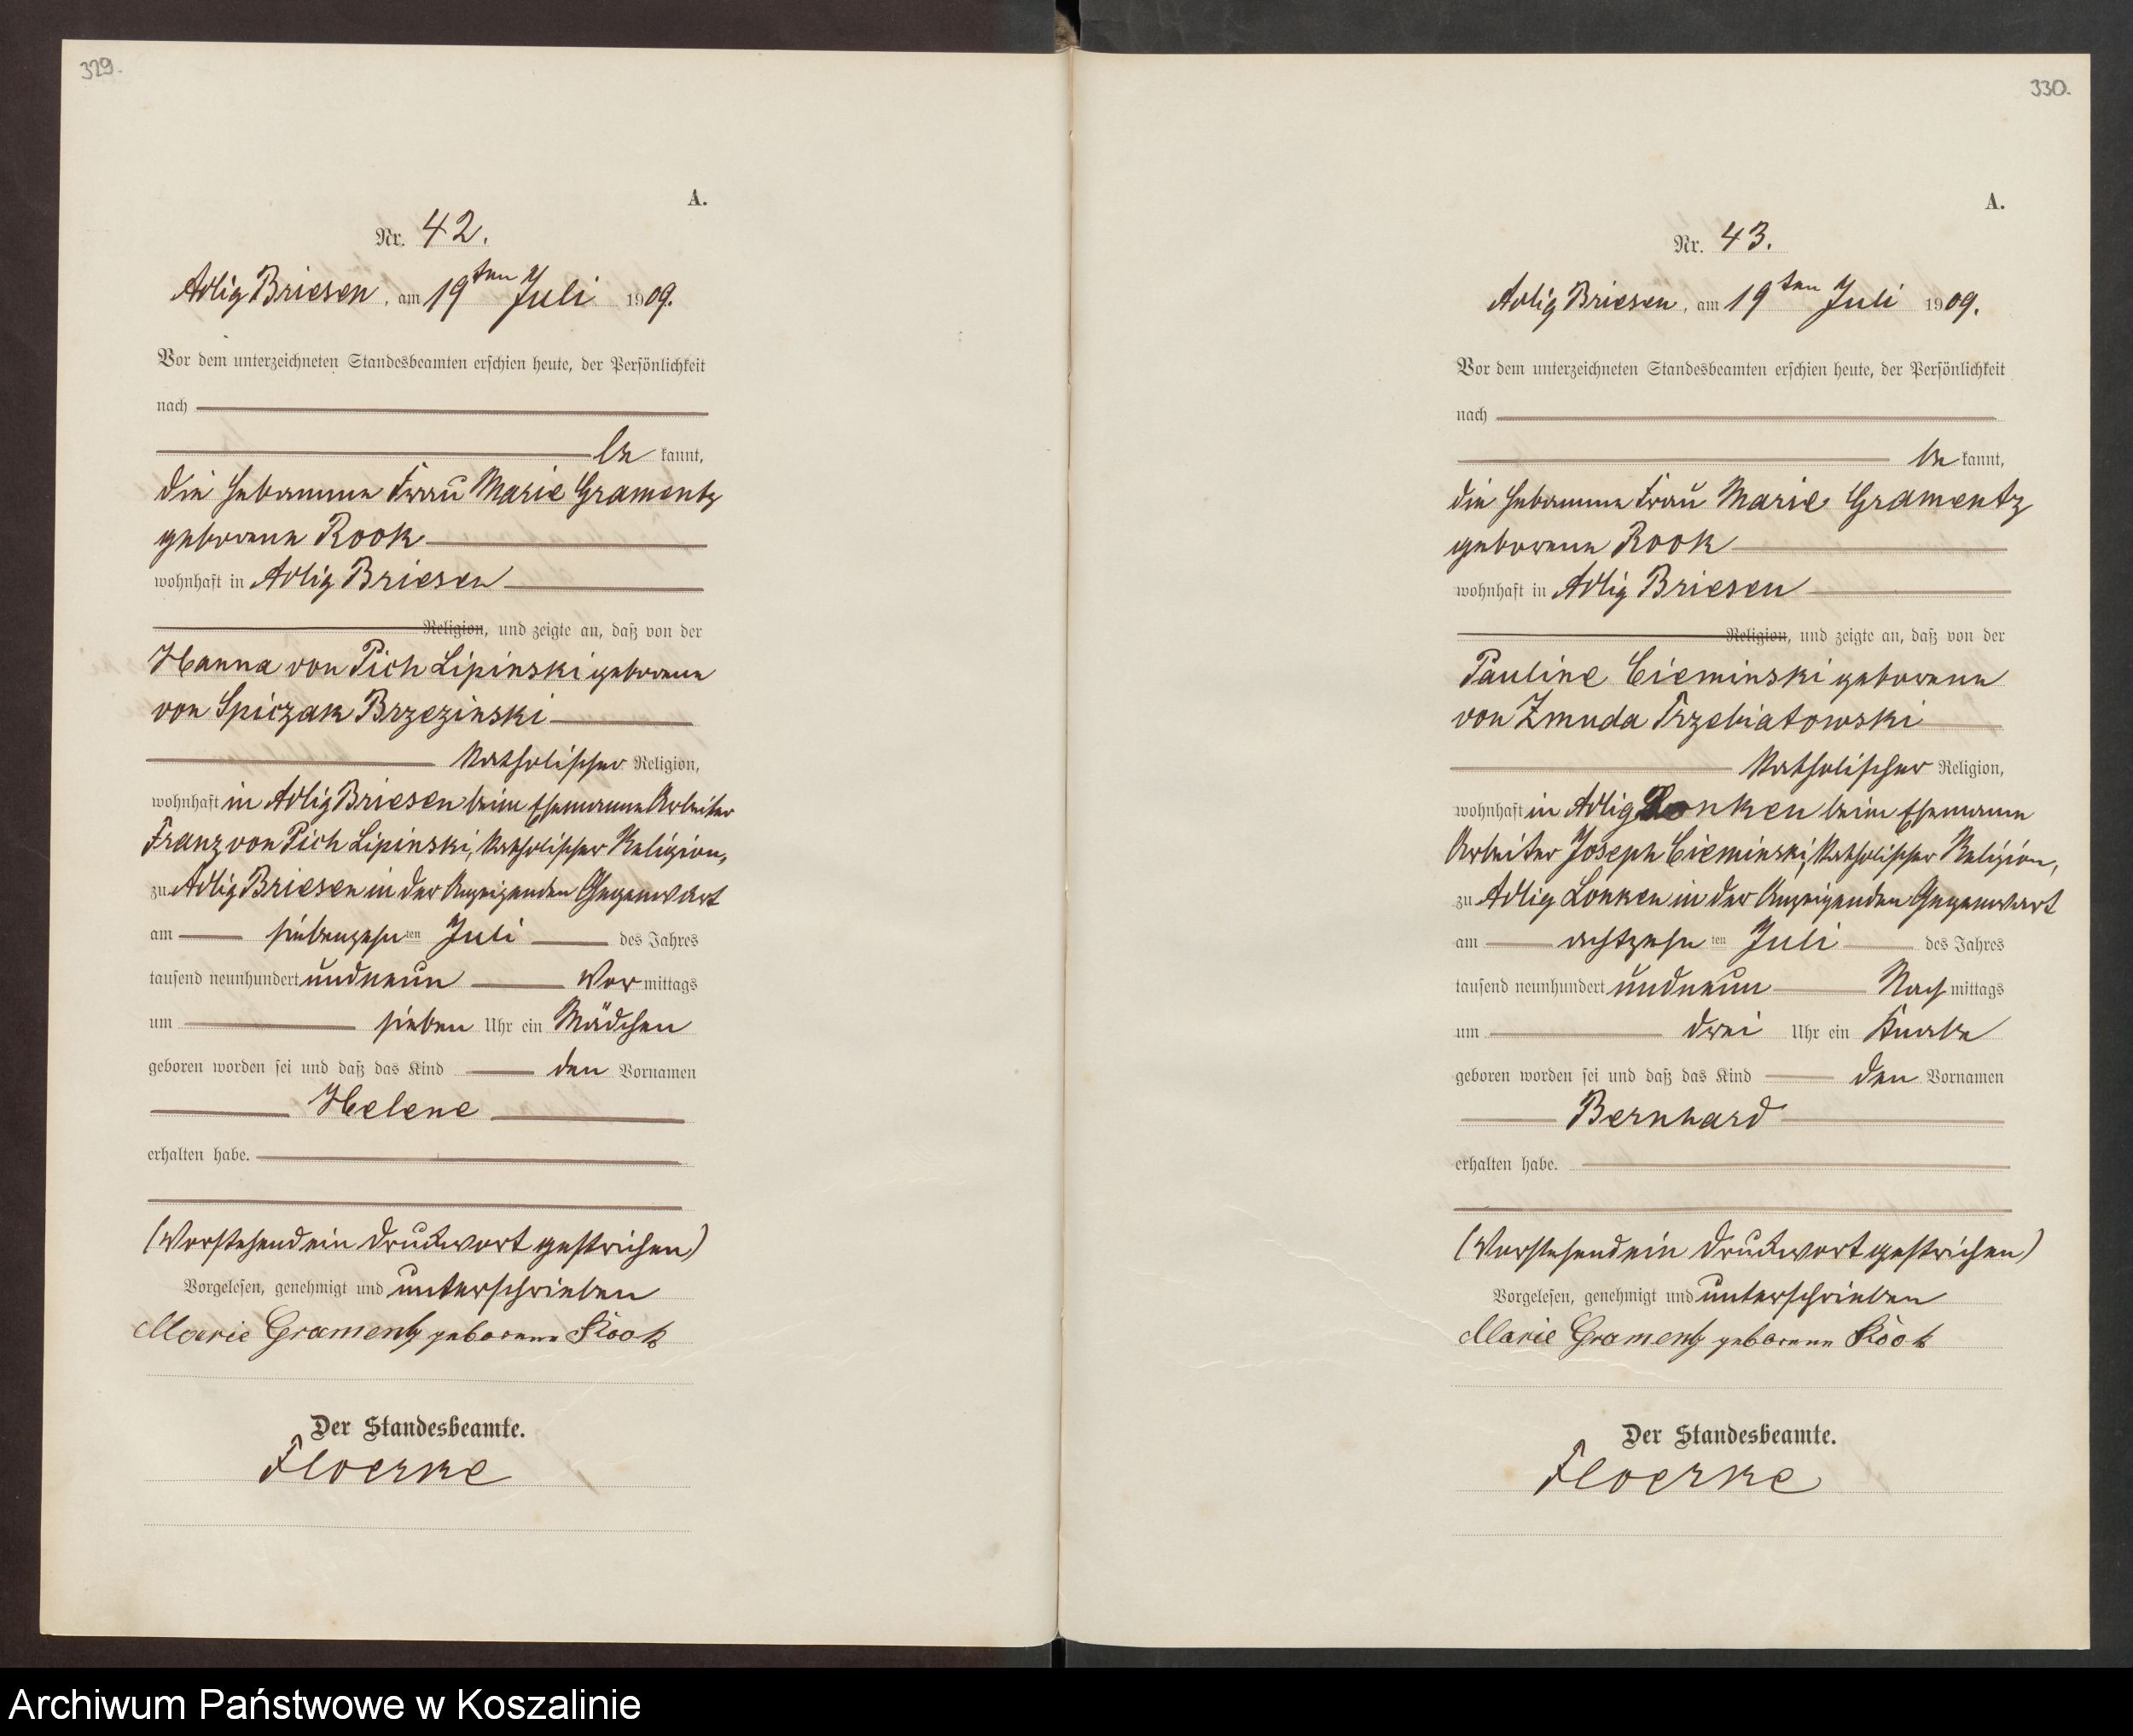 329.
A.
Nr. 42.
Adlig Briesen, am 19ten Juli 1909.
Vor dem unterzeichneten Standesbeamten erschien heute, der Persönlichkeit
nach
be kannt,
die Hebamme Frau Marie Gramentz
geborene Rook
wohnhaft in Adlig Briesen
Religion, und zeigte an, daß von der
Hanna von Pich Lipinski geborene
von Spiczak Brzezinski
katholischer Religion,
wohnhaft in Adlig Briesen beim Ehemanne Arbeiter
Franz von Pich Lipinski, katholischer Religion,
zu Adlig Briesen in der Anzeigenden Gegenwart
am siebenzehnten Juli des Jahres
tausend neunhundert undneun Vor mittags
um sieben Uhr ein Mädchen
geboren worden sei und daß das Kind den Vornamen
Helene
erhalten habe.
(Vorstehend ein Druckwort gestrichen)
Vorgelesen, genehmigt und unterschrieben
Marie Gramentz geborene Rook
Der Standesbeamte.
Floerke
330.
A.
Nr. 43.
Adlig Briesen, am 19ten Juli 1909.
Vor dem unterzeichneten Standesbeamten erschien heute, der Persönlichkeit
nach
be kannt,
die Hebamme Frau Marie Gramentz
geborene Rook
wohnhaft in Adlig Briesen
Religion, und zeigte an, daß von der
Pauline Cieminski geborene
von Zmuda Trzebiatowski
katholischer Religion,
wohnhaft in Adlig Lonken beim Ehemanne
Arbeiter Joseph Cieminski, katholischer Religion,
zu Adlig Lonken in der Anzeigenden Gegenwart
am achtzehnten Juli des Jahres
tausend neunhundert undneun Nach mittags
um drei Uhr ein Knabe
geboren worden sei und daß das Kind den Vornamen
Bernhard
erhalten habe.
(Vorstehend ein Druckwort gestrichen)
Vorgelesen, genehmigt und unterschrieben
Marie Gramentz geborene Rook
Der Standesbeamte.
Floerke
Archiwum Państwowe w Koszalinie